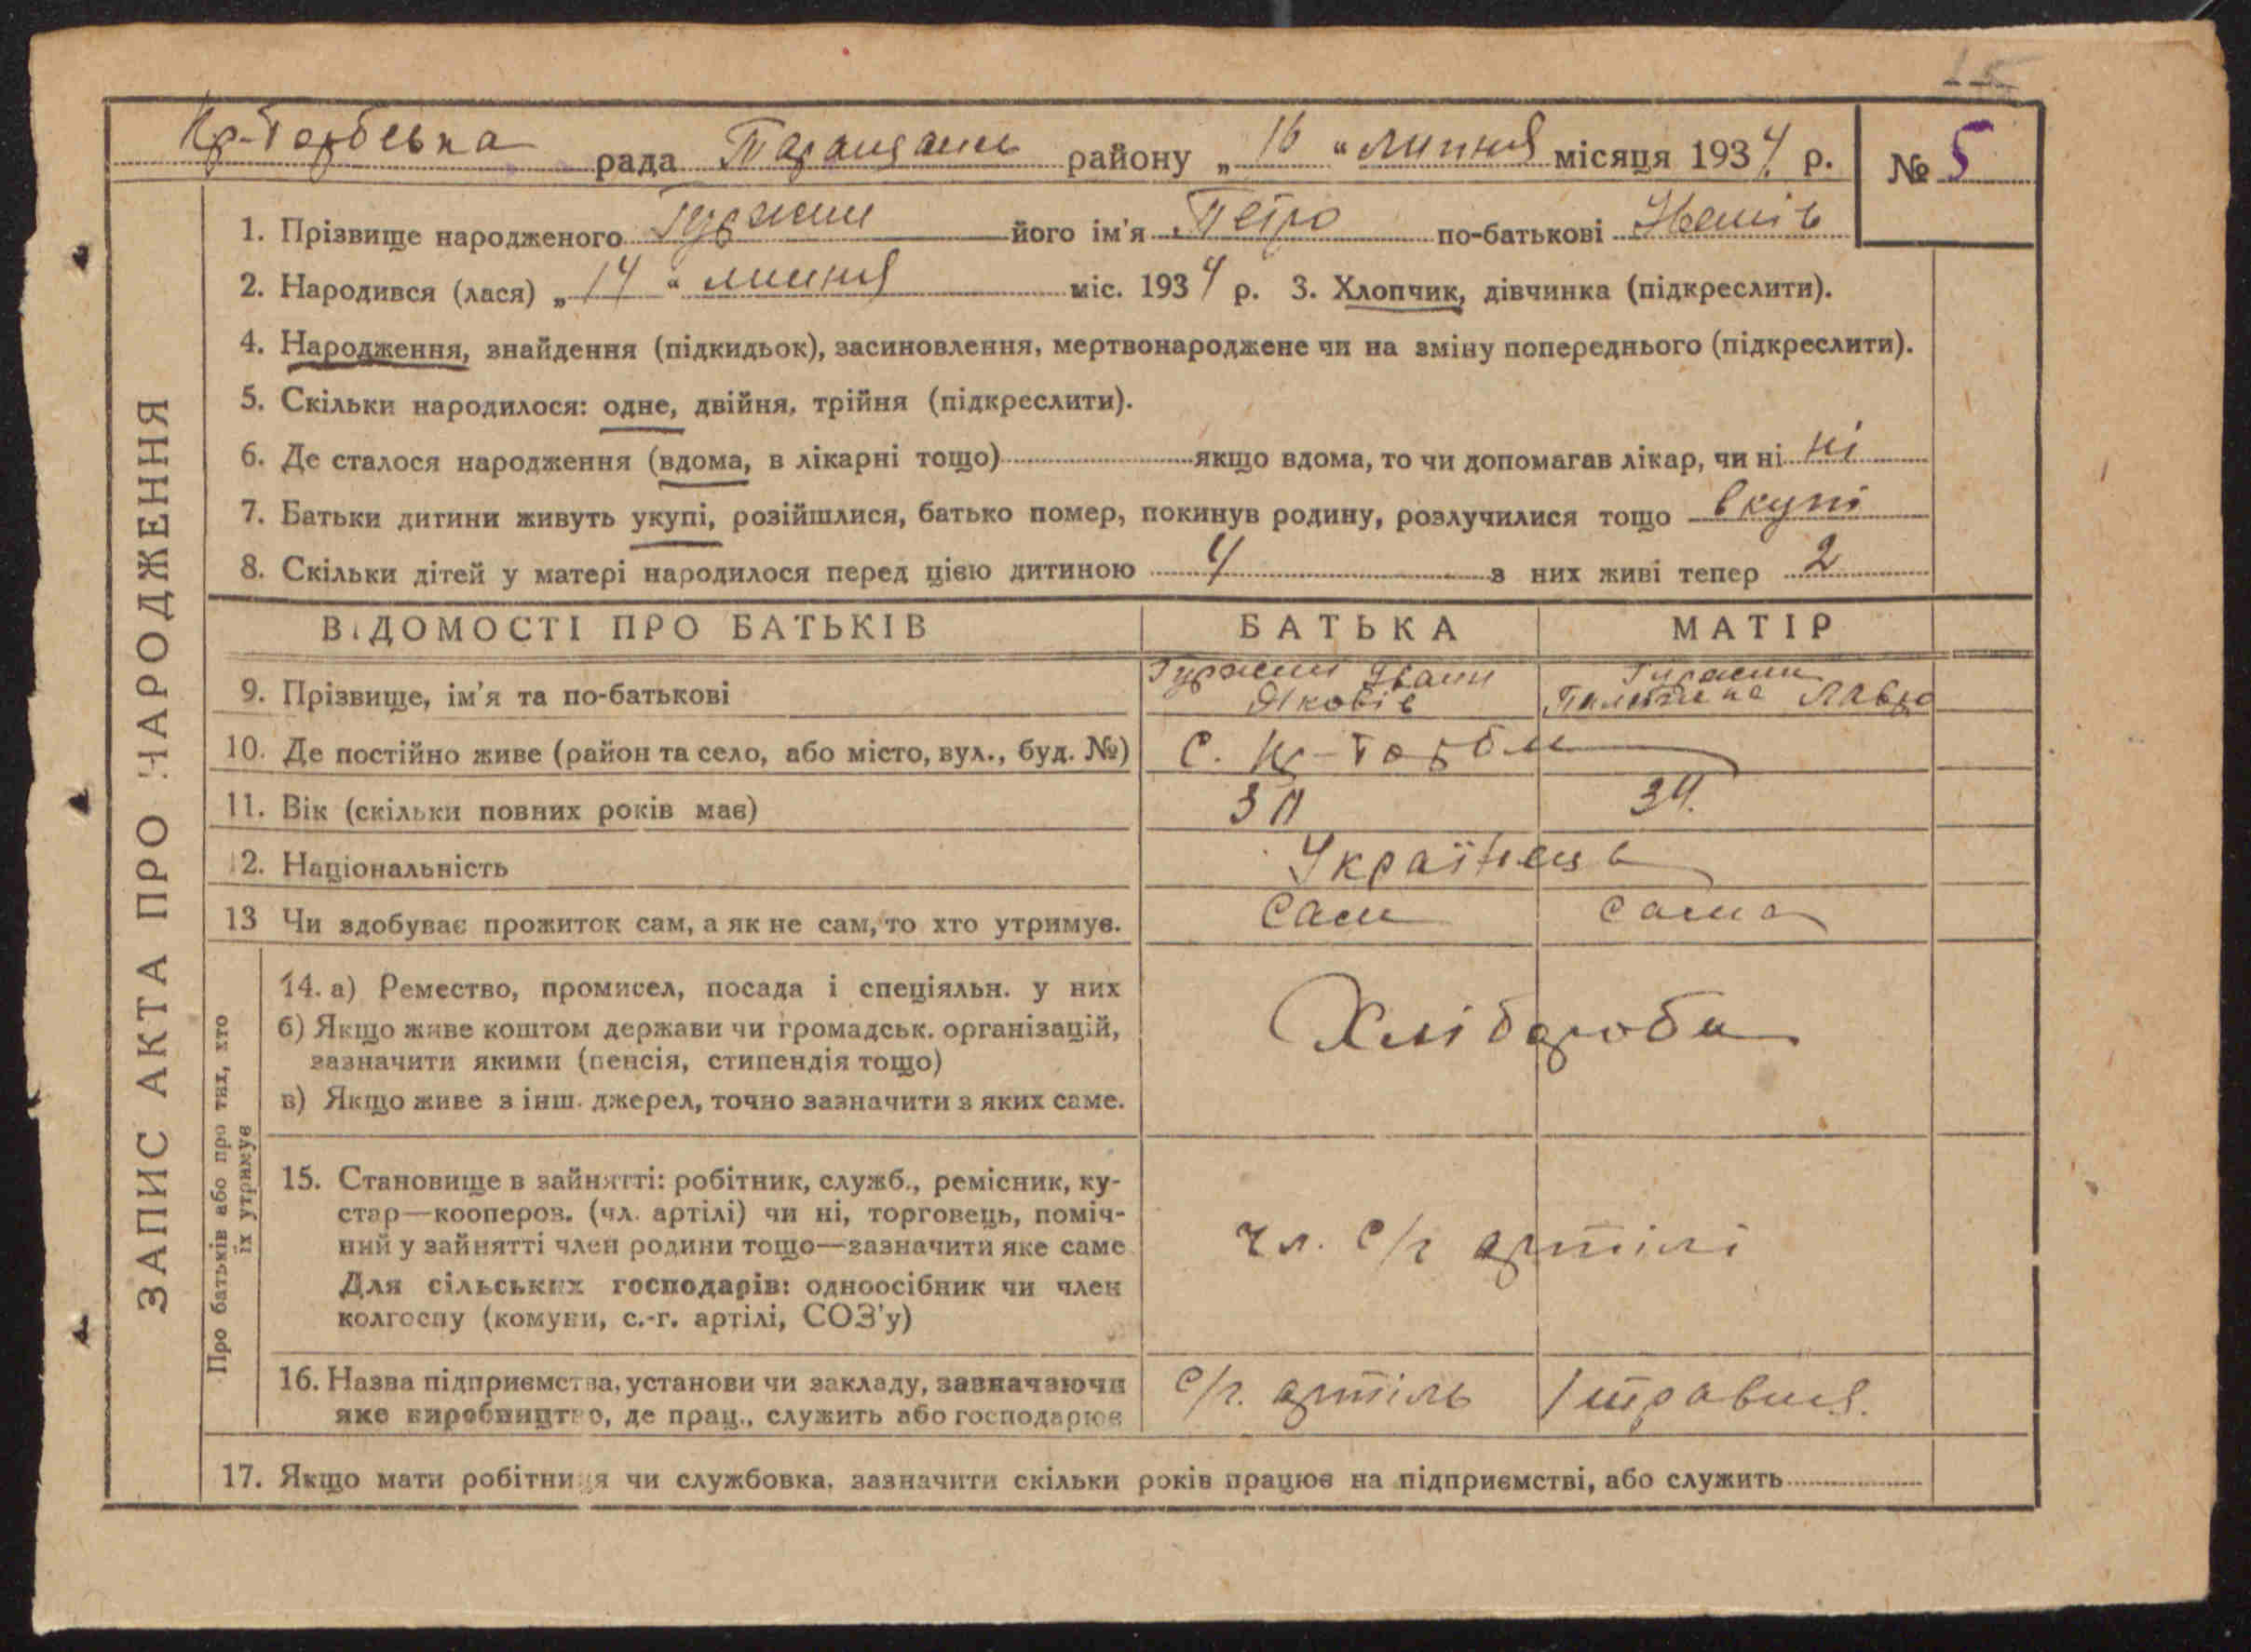 15
Кр-Торбська рада Таращанськ району „ 16 “ липня місяця 1934 р. № 5
1. Прізвище народженого його ім'я Петро по-батькові
2. Народився (лася) „ 14 “ липня міс. 1934 р. 3. Хлопчик, дівчинка (підкреслити).
4. Народження, знайдення (підкидьок), засиновлення, мертвонароджене чи на зміну попереднього (підкреслити).
5. Скільки народилося: одне, двійня, трійня (підкреслити).
6. Де сталося народження (вдома, в лікарні тощо) якщо вдома, то чи допомагав лікар, чи ні ні
7. Батьки дитини живуть укупі, розійшлися, батько помер, покинув родину, розлучилися тощо вкупі
8. Скільки дітей у матері народилося перед цією дитиною 4 з них живі тепер 2
ВІДОМОСТІ ПРО БАТЬКІВ БАТЬКА МАТІР
9. Прізвище, ім'я та по-батькові Іван
Яковів Лавро
10. Де постійно живе (район та село, або місто, вул., буд. №) с. Кр-Торби
11. Вік (скільки повних років має) 34.
12. Національність Українець
13 Чи здобуває прожиток сам, а як не сам, то хто утримує. Сам сама
14. а) Ремество, промисел, посада і спеціяльн. у них
б) Якщо живе коштом держави чи громадськ. організацій,
зазначити якими (пенсія, стипендія тощо)
в) Якщо живе з інш. джерел, точно зазначити з яких саме.
Хлібороби
15. Становище в зайнятті: робітник, служб., ремісник, ку-
стар—кооперов. (чл. артілі) чи ні, торговець, поміч-
ний у зайнятті член родини тощо—зазначити яке саме
Для сільських господарів: одноосібник чи член
колгоспу (комуни, с.-г. артілі, СОЗ'у)
чл. с/г артілі
16. Назва підприємства, установи чи закладу, зазначаючи
яке виробництво, де прац., служить або господарює
с/г. артіль 1 травня.
17. Якщо мати робітниця чи службовка, зазначити скільки років працює на підприємстві, або служить
ЗАПИС АКТА ПРО НАРОДЖЕННЯ
Про батьків або про тих, хто
їх утримує